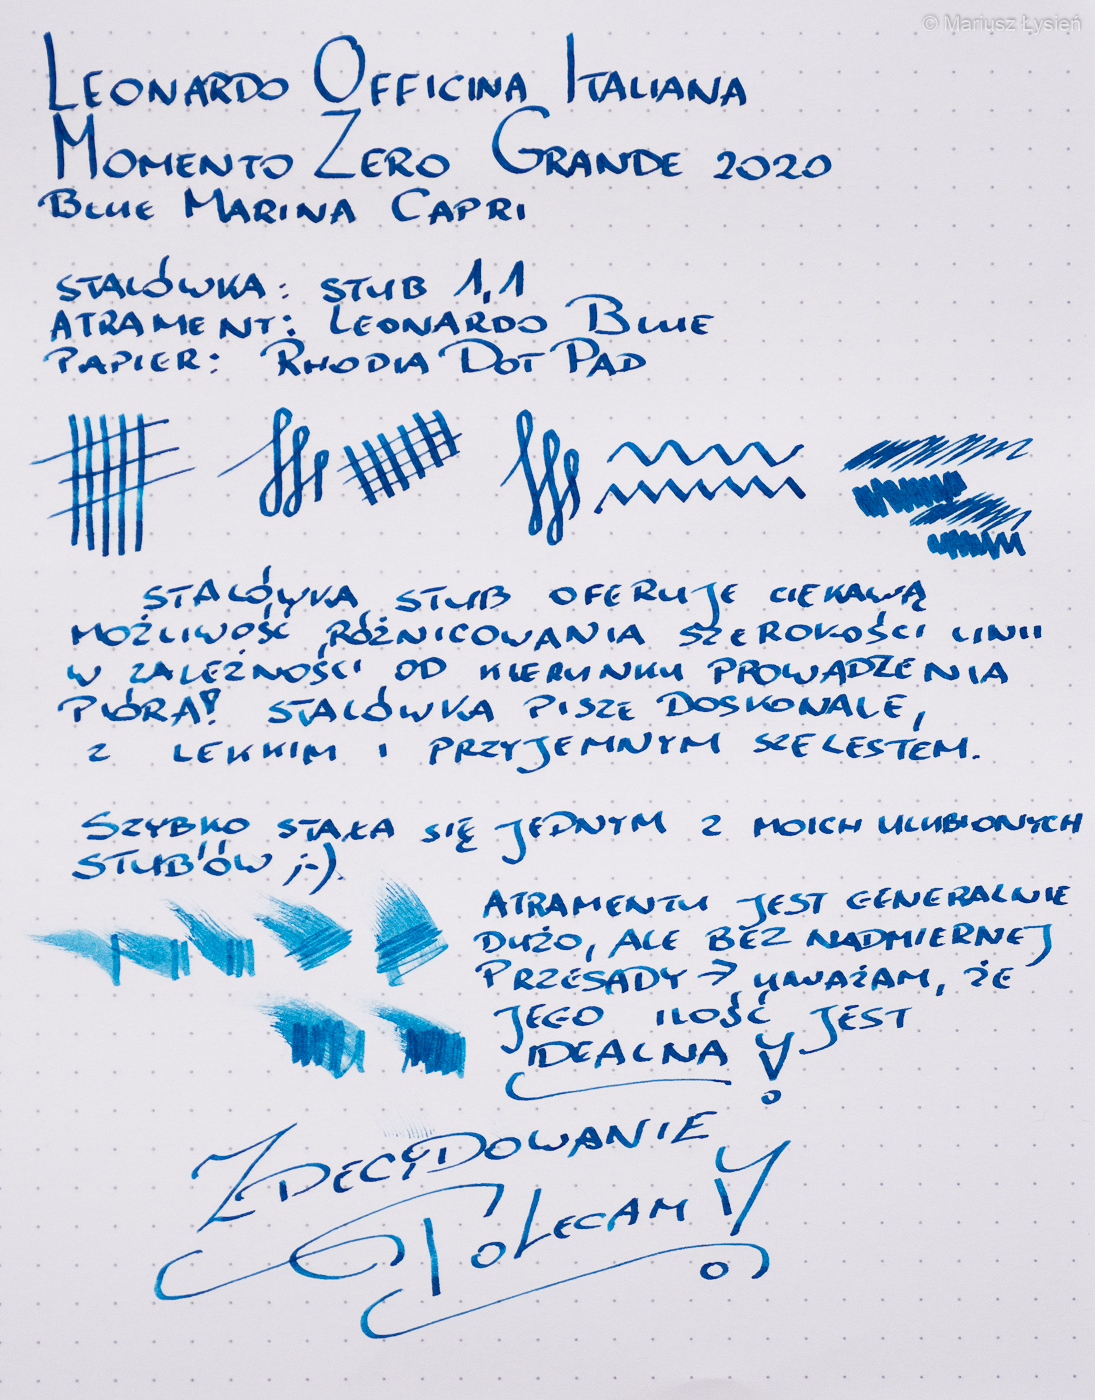 © Mariusz Łysień
LEONARDO OFFICINA ITALIANA
MOMENTO ZERO GRANDE 2020
BLUE MARINA CAPRI
STALÓWKA: STUB 1,1
ATRAMENT: LEONARDO BLUE
PAPIER: RHODIA DOT PAD
STALÓWKA STUB OFERUJE CIEKAWĄ
MOŻLIWOŚĆ RÓŻNICOWANIA SZEROKOŚCI LINII
W ZALEŻNOŚCI OD KIERUNKU PROWADZENIA
PIÓRA! STALÓWKA PISZE DOSKONALE,
Z LEKKIM I PRZYJEMNYM SZELESTEM.
SZYBKO STAŁA SIĘ JEDNYM Z MOICH ULUBIONYCH
STUB'ÓW ;-).
ATRAMENTU JEST GENERALNIE
DUŻO, ALE BEZ NADMIERNEJ
PRZESADY → UWAŻAM, ŻE
JEGO ILOŚĆ JEST
IDEALNA!
ZDECYDOWANIE
POLECAM!